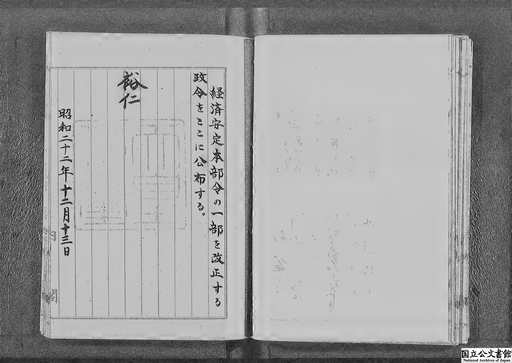 経済安定本部令の一部を改正する
政令をここに公布する。
裕仁
昭和二十二年十二月十三日
内閣
国立公文書館
National Archives of Japan